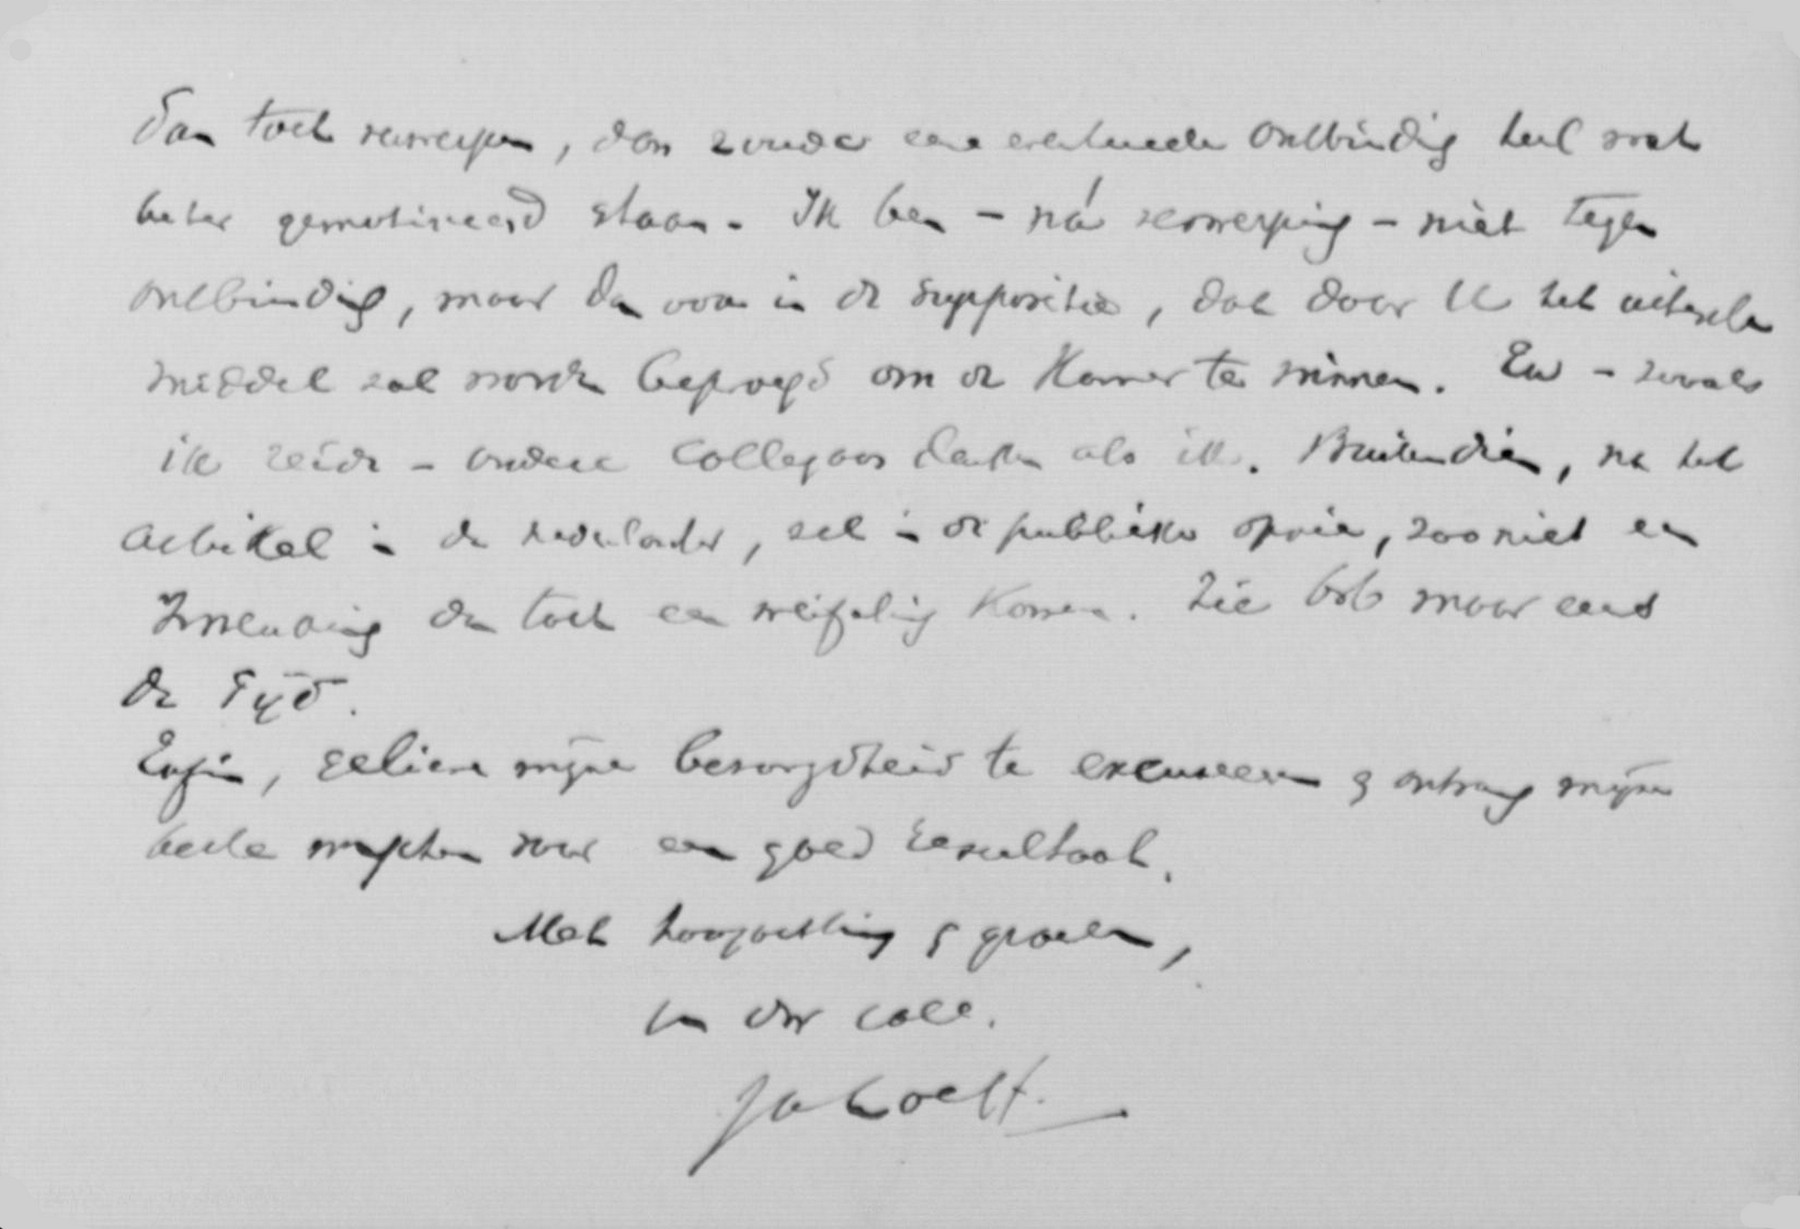 dan toch verwerpen, dan zoude eene eventueele ontbinding heel wat
beter gemotiveerd staan. Ik ben – ná verwerping – niet tegen
ontbinding, maar dan ook in de suppositie, dat door U het uiterste
middel zal worden beproefd om de Kamer te winnen. En – zooals
ik zeide – andere collegaas denken als ik. Buitendien, na het
artikel in de Nederlander, zal in de publieke opinie, zoo niet een
zwenking dan toch een weifeling komen. Zie ook maar eens
de Tijd.
Enfin, gelieve mijne bezorgdheid te excuseeren & ontvang mijne
beste wenschen voor een goed resultaat.
Met hoogachting & groeten,
Uw dw coll.